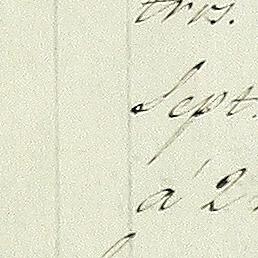 tros.
Sept.
á 2